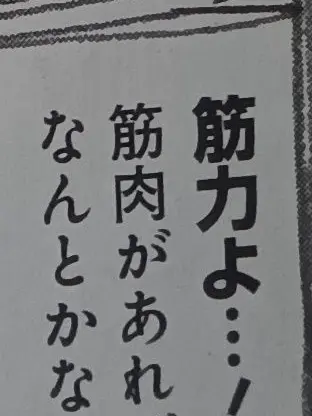 筋力よ…!
筋肉があれ
なんとかな